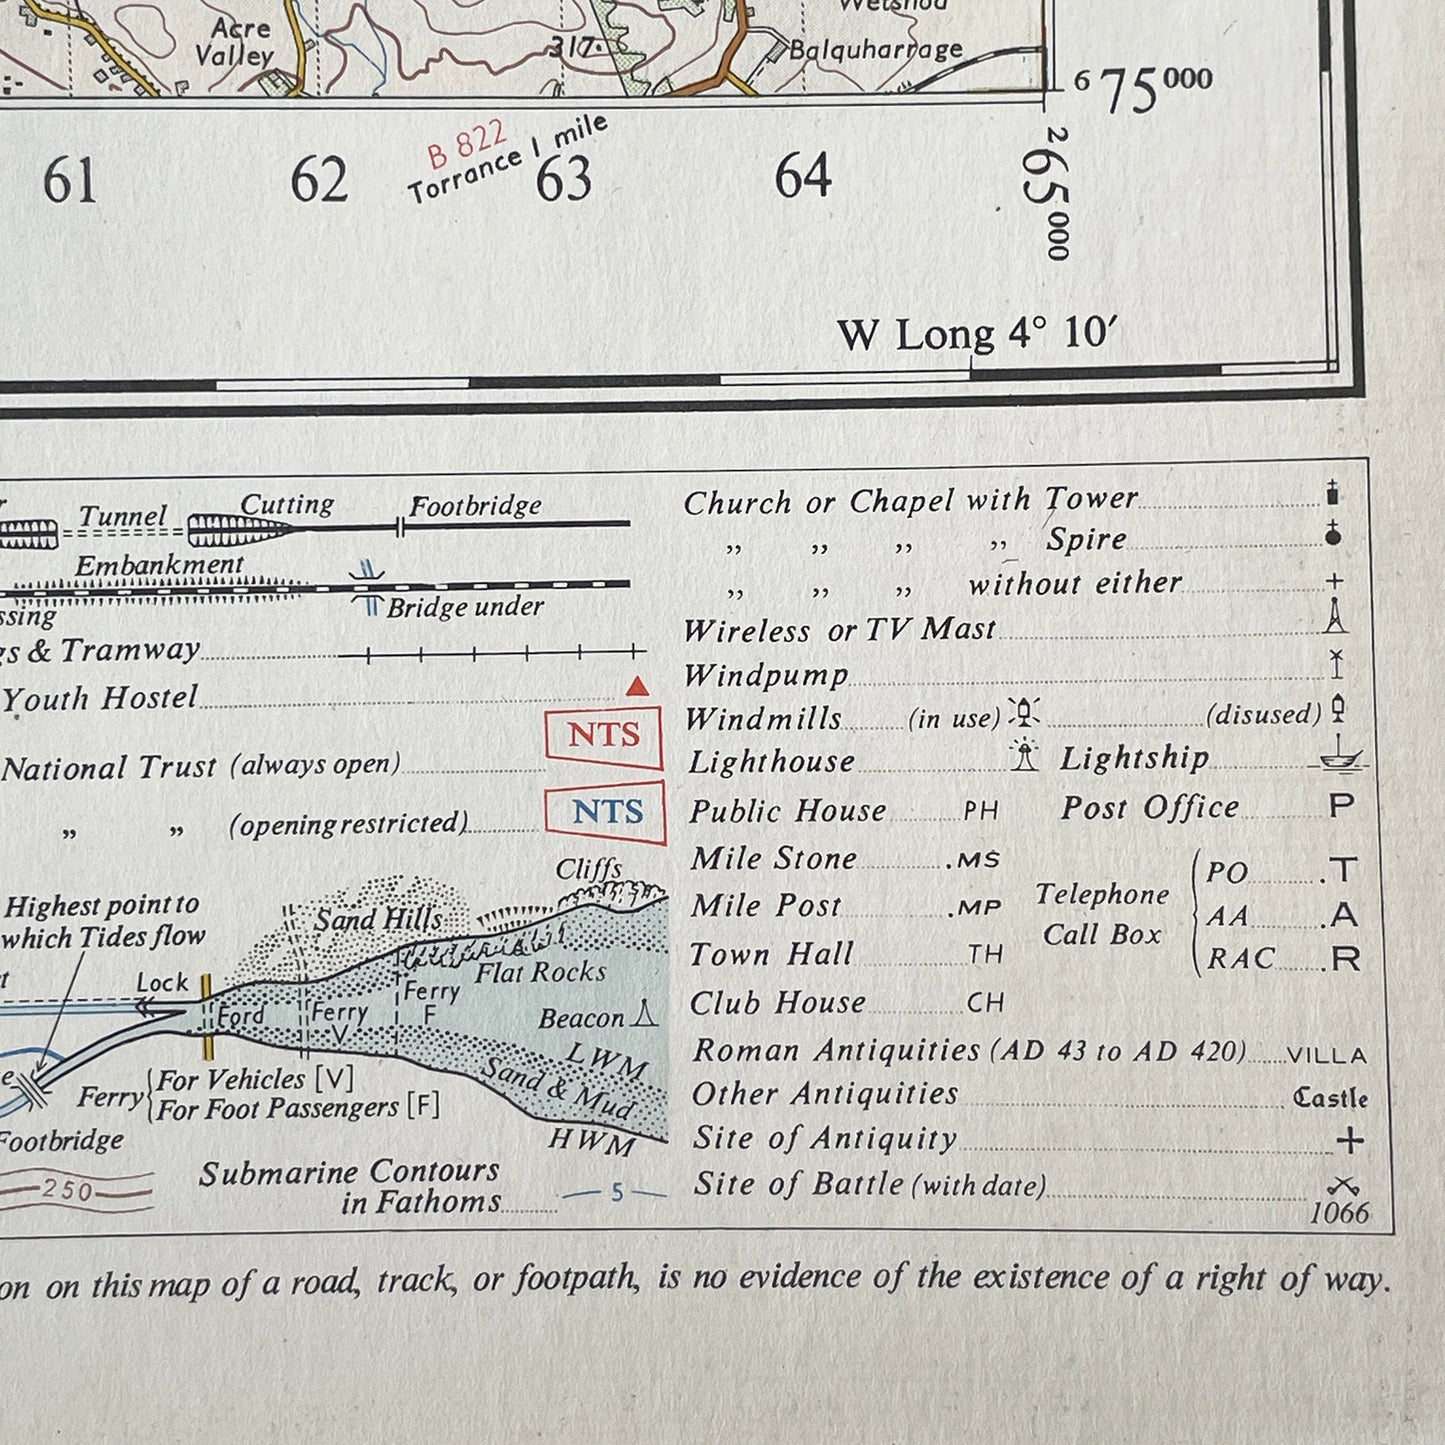 Acre
Valley
317
Balquharrage
6 75 000
61
62
B 822
Torrance 1 mile
63
64
2 65 000
W Long 4° 10′
Tunnel
Cutting
Footbridge
Embankment
Bridge under
& Tramway
Youth Hostel
NTS
National Trust (always open)
NTS
„ „ (opening restricted)
Cliffs
Highest point to
which Tides flow
Sand Hills
Flat Rocks
Lock
Ford
Ferry
V
Ferry
F
Beacon
LWM
Sand & Mud
HWM
Ferry
For Vehicles [V]
For Foot Passengers [F]
Footbridge
250
Submarine Contours
in Fathoms
5
Church or Chapel with Tower
„ „ „ „ Spire
„ „ „ without either
Wireless or TV Mast
Windpump
Windmills (in use) (disused)
Lighthouse Lightship
Public House PH Post Office P
Mile Stone .MS
Mile Post .MP
Town Hall TH
Club House CH
Telephone
Call Box
PO .T
AA .A
RAC .R
Roman Antiquities (AD 43 to AD 420) VILLA
Other Antiquities Castle
Site of Antiquity
Site of Battle (with date)
1066
on this map of a road, track, or footpath, is no evidence of the existence of a right of way.